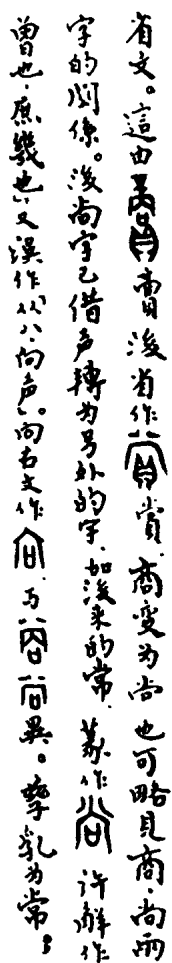 省文。這由賣後省作賞，商變为尚也可略見商、尚两
字的関係。後尚字已借声轉为另外的字，如後来的常，篆作尚，許解作
曾也，庶幾也，又误作从八、向声。向古文作向，与异。孳乳为常：